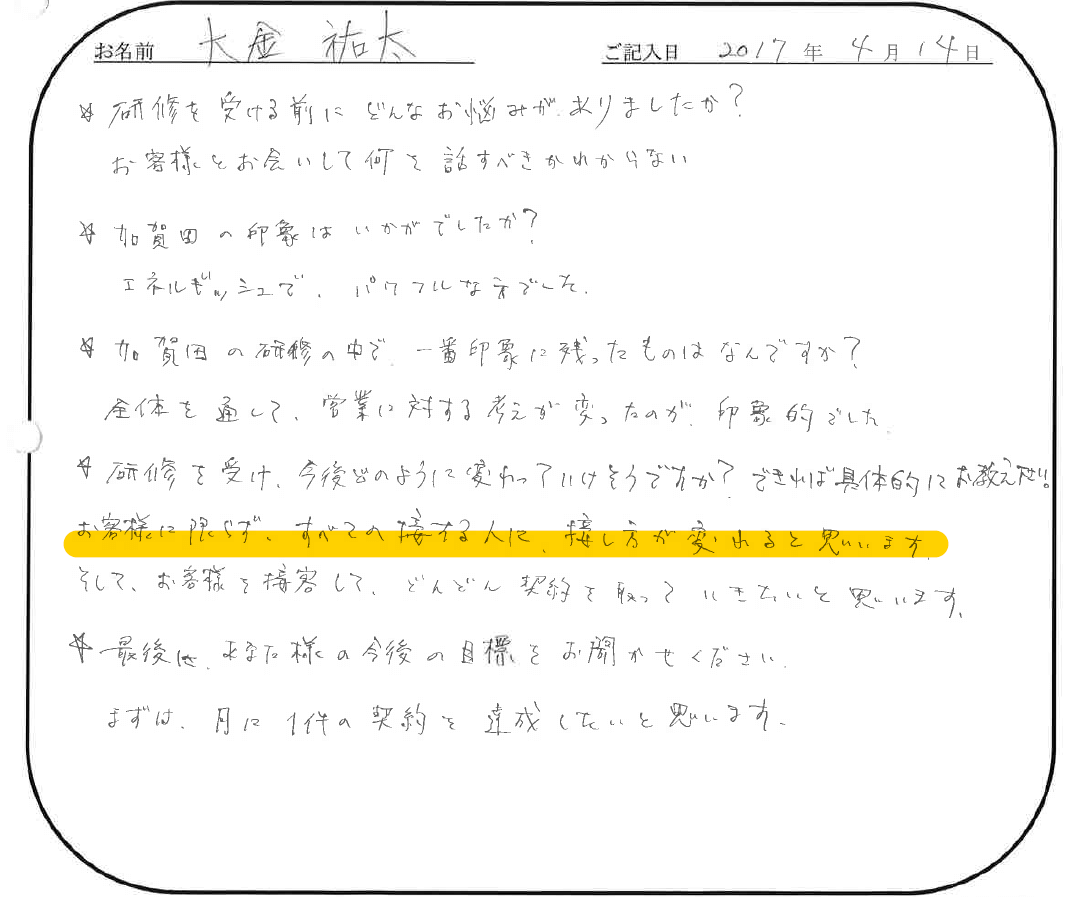 お名前 大金 祐太 ご記入日 2017年 4月 14日
☆ 研修を受ける前にどんなお悩みがありましたか?
お客様とお会いして何を話すべきかわからない
☆ 加賀田の印象はいかがでしたか?
エネルギッシュで、パワフルな方でした。
☆ 加賀田の研修の中で、一番印象に残ったものはなんですか?
全体を通して、営業に対する考えが変ったのが、印象的でした。
☆ 研修を受け、今後どのように変わっていけそうですか?できれば具体的にお教え下さい!
お客様に限らず、すべての接する人に、接し方が変れると思います。
そして、お客様を接客して、どんどん契約を取っていきたいと思います。
☆ 最後に、あなた様の今後の目標をお聞かせください。
まずは、月に1件の契約を達成したいと思います。